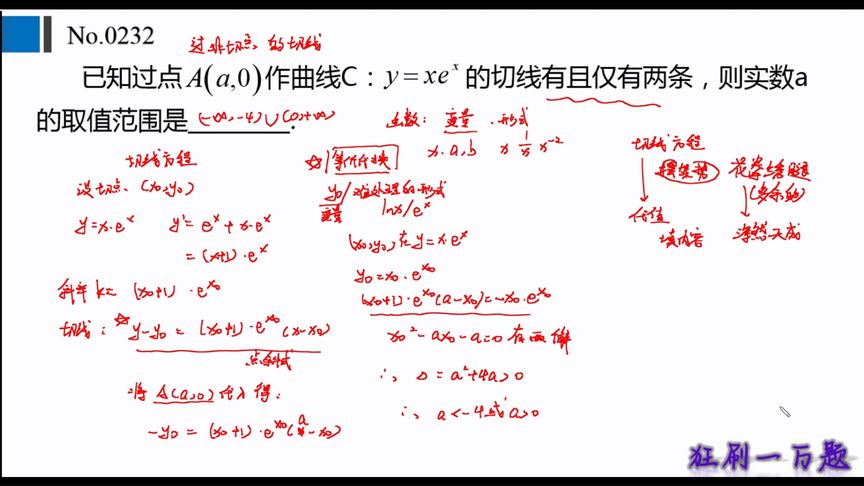 No.0232
过非切点的切线
已知过点A(a,0)作曲线C：y=xe^x的切线有且仅有两条，则实数a
的取值范围是 (-∞,-4)∪(0,+∞) .
切线方程
设切点(x₀,y₀)
y=x·e^x y'=e^x+x·e^x
=(x+1)·e^x
斜率k=(x₀+1)·e^x₀
切线：☆y-y₀=(x₀+1)·e^x₀(x-x₀)
点斜式
将A(a,0)代入得：
-y₀=(x₀+1)·e^x₀(a-x₀)
函数：变量、形式
x.a,b x 1/x x^-2
☆等价代换
y₀/难处理的形式
变量 lnx/e^x
(x₀,y₀)在y=x·e^x
y₀=x₀·e^x₀
(x₀+1)·e^x₀(a-x₀)=-x₀·e^x₀
x₀²-ax₀-a=0有两解
∴ Δ=a²+4a>0
∴ a<-4或a>0
切线方程
搭架势
代值
填内容
花拳绣腿
(多余的)
浑然天成
狂刷一万题